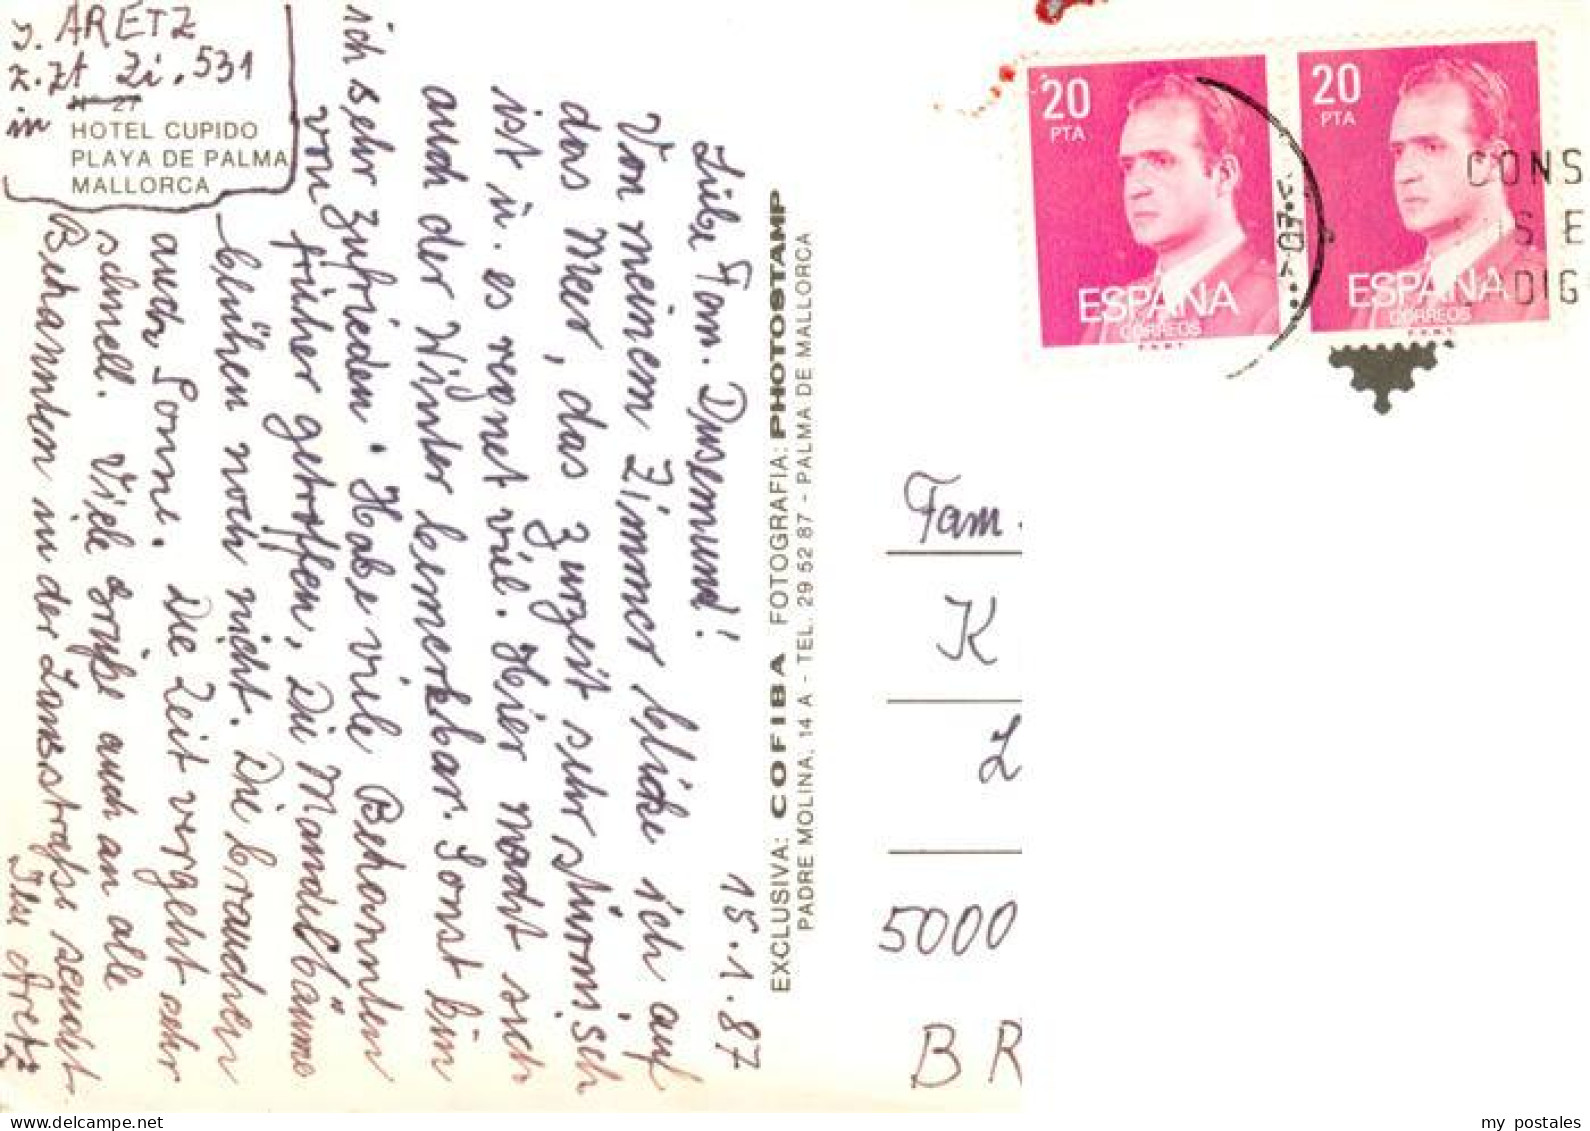 J. ARETZ
z. Zt Zi. 531
in
Nº 27
HOTEL CUPIDO
PLAYA DE PALMA
MALLORCA
15.1.87
Liebe Fam. Dusemund!
Von meinem Zimmer blicke ich auf
das Meer, das zurzeit sehr stürmisch
ist u. es regnet viel. Hier macht sich
auch der Winter bemerkbar. Sonst bin
ich sehr zufrieden. Habe viele Bekannten
von früher getroffen, Die Mandelbäume
blühen noch nicht. Die brauchen
auch Sonne. Die Zeit vergeht sehr
schnell. Viele Grüße auch an alle
Bekannten in der Landstraße sendet
Ilse Aretz
EXCLUSIVA: COFIBA FOTOGRAFIA: PHOTOSTAMP
PADRE MOLINA, 14 A - TEL. 29 52 87 - PALMA DE MALLORCA
20
PTA
ESPAÑA
CORREOS
F.N.M.T.
20
PTA
ESPAÑA
CORREOS
F.N.M.T.
CONS
IS E
DIG
Fam.
K
L
5000
BR
my postales